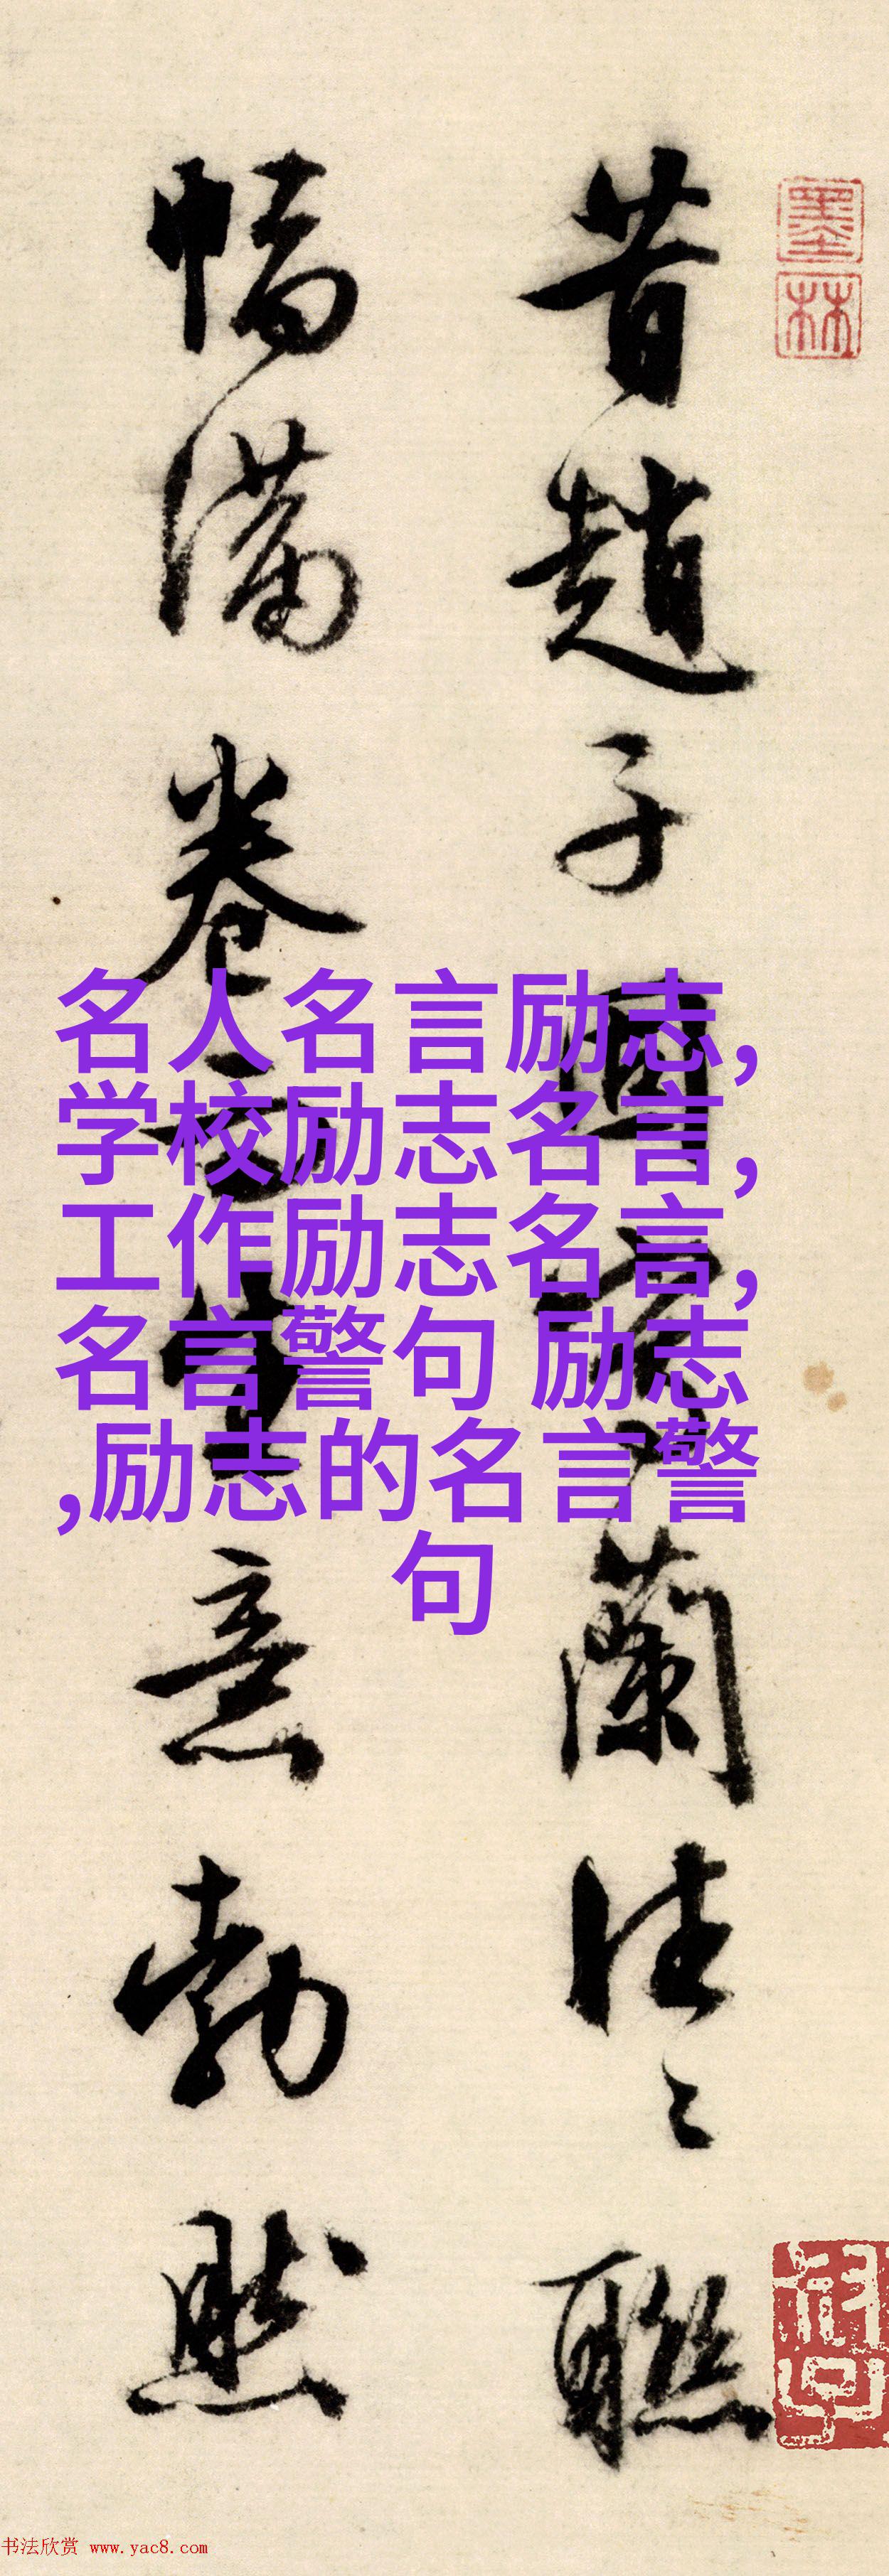 昔趙子固寫蘭往〻聯
幅滿卷而生意勃然
墨林
名人名言励志,
学校励志名言,
工作励志名言,
名言警句 励志
,励志的名言警
句
书法欣赏 www.yac8.com